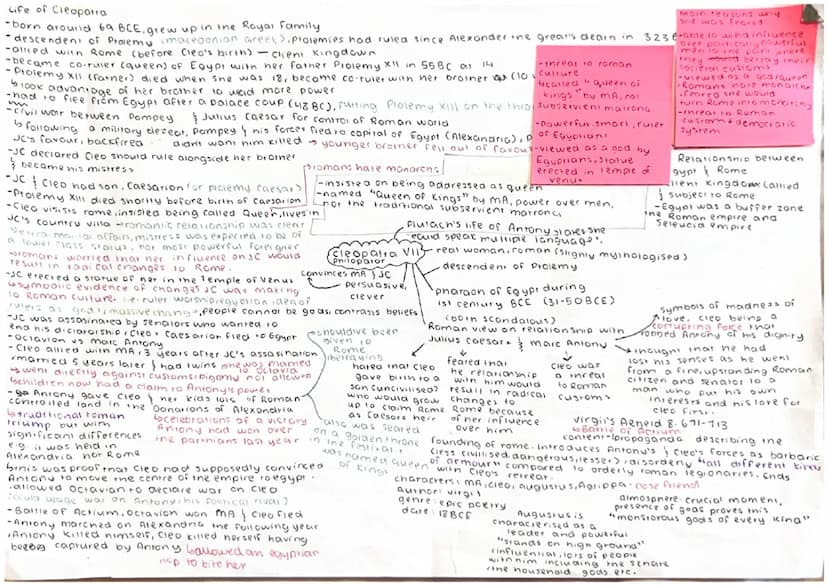 Life of Cleopatra
-born around 69 BCE, grew up in the Royal Family
-descendent of Ptolemy (macedonian Greek), Ptolemies had ruled since Alexander the great's death in 323 B
-allied with Rome (before Cleo's birth) — client Kingdown
-became co-ruler (queen) of Egypt with her father Ptolemy XII in 55BC at 14
-Ptolemy XII (father) died when she was 18, became co-ruler with her brother (10
↳ took advantage of her brother to wield more power
-had to flee from Egypt after a palace coup (48BC), putting Ptolemy XIII on the thro
-civil war between Pompey & Julius Caesar for control of Roman world
↳ following a military defeat, Pompey & his forces fled to capital of Egypt (Alexandria), P
JC's favour, backfired didn't want him killed → younger brother fell out of favour
-JC declared Cleo should rule alongside her brother
& became his mistress
-JC & Cleo had son, Caesarion (or Ptolemy Caesar)
-Ptolemy XIII died shortly before birth of Caesarion
-Cleo visits rome, insisted being called Queen, lives in
JC's country villa → romantic relationship was clear
↳ extra marital affairs, mistress was expected to be of
a lower class status, not most powerful foreigner
↳ romans worried that her influence on JC would
result in radical changes to Rome.
-JC erected a statue of her in the Temple of Venus
↳ symbolic evidence of changes JC was making
to Roman culture i.e. ruler worship, egyptian idea of
rulers as gods, massive change, people cannot be gods, contrasts beliefs
-JC was assasinated by senators who wanted to
end his dictatorship, Cleo & Caesarion fled to Egypt
-Octavian vs Marc Antony
-Cleo allied with MA, 3 years after JC's assassination
, married 5 years later & had twins
one was married
to Octavia
↳ went directly against customs, bigamy not allowed
↳ children now had a claim to Antony's power
- Antony gave Cleo & her kids lots of Roman
controlled land in the Donations of Alexandria
↳ traditional roman
triump but with
significant differences
e.g. it was held in
Alexandria not Rome
↳ celebrations of a victory
Antony had won over
the parthians last year
should've been
given to
Rome,
betraying
also was seated
on a golden throne
in the festival &
was named Queen
of Kings
↳ this was proof that Cleo had supposedly convinced
Antony to move the centre of the empire to egypt.
, allowed Octavian to declare war on Cleo
(could wage war on Antony, his political rival)
-Battle of Actium, Octavian won MA & Cleo fled
-Antony marched on Alexandria the following year
, Antony killed himself, Cleo killed herself having
been captured by Antony
↳ allowed an egyptian
asp to bite her
romans hate monarchs
-insisted on being addressed as queen
-named "Queen of Kings" by MA, power over men,
not the traditional subservient matrona
Cleopatra VII
philopator
Plutarch's life of Antony says she
could speak multiple language's.
real woman, roman (slighly mythologised)
descendent of Ptolemy
pharoah of Egypt during
1st century BCE (31-50BCE)
convinces MA & JC
persuasive,
clever
(both scandalous)
Roman view on relationship with
Julius Caesar & Marc Antony
hated that Cleo
gave birth to a
son (uncivilised)
who would grow
up to claim Rome
as Caesar's heir
feared that
the relationship
with him would
result in radical
changes to
Rome because
of her influence
over him
Cleo was
a threat
to Roman
customs
symbols of madness of
love, Cleo being a
corrupting force that
robbed Antony of his dignity
thought that he had
lost his senses as he went
from a fine, upstanding Roman
citizen and senator to a
man who put his own
interests and his love for
cleo first.
Virgil's Aeneid 8.671-713
↳ Battle of Actium
content - propaganda describing the
founding of rome. introduces Antony's & Cleo's forces as barbaric
(less civilised, dangerous, lesser), disorderly "all different kinds
of armour" compared to orderly roman legionaries. Ends
with Cleo's retreat.
characters: MA, cleo, Augustus, Agrippa - close friend
author: virgil
genre: epic poetry
date: 19BCE
Augustus is
characterised as a
leader and powtiful
"stands on high ground"
, influential, lots of people
with him including the senate
, the household gods etc.
atmosphere: crucial moment,
presence of gods proves this
"monstrous gods of every kind"
Relationship between
Egypt & Rome
client kingdom (allied
& subject to Rome
-Egypt was a buffer zone
the Roman empire and
Seleucia empire
-threat to roman
culture
↳ called "queen of
kings" by MA, not
subservient matrona
-powerful, smart, ruler
of Egyptians
-viewed as a god by
Egyptians, statue
erected in temple of
venus
main reasons why
she was feared
-able to wield influence
over politically powerful
men to the point where
they would betray their
societal customs
-viewed as a god/queen
, Romans hate monarchs
, feared she would
turn Rome into monarchy
-threat to Roman
customs & democratic
system